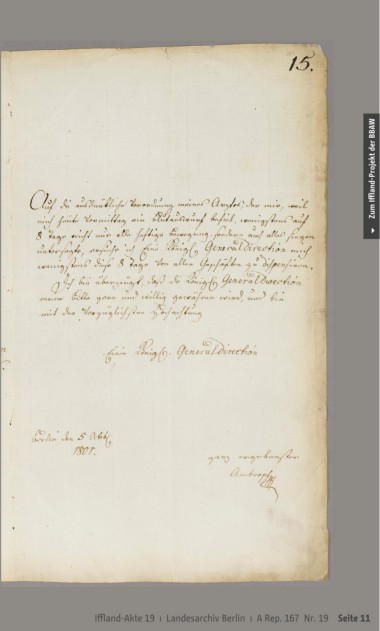 15.
Auf die ausdrückliche Verordnung meines Arztes, der mir, weil
mich heute Vormittag ein Blutauswurf befiel, wenigstens auf
8 Tage nicht nur alle heftige Bewegung sondern auch alles Singen
untersagte, ersuche ich Eine Königl. Generaldirection mich
wenigstens diese 8 Tage von allen Geschäften zu dispensiren.
Ich bin überzeugt, daß die Königl. Generaldirection
meine Bitte gern und willig gewähren wird, und bin
mit der vorzüglichsten Hochachtung
Einer Königl. Generaldirection
Berlin den 5
1801.
ganz ergebenster
Ambrosch
Zum Iffland-Projekt der BBAW
Iffland-Akte 19 | Landesarchiv Berlin | A Rep. 167 Nr. 19 Seite 11